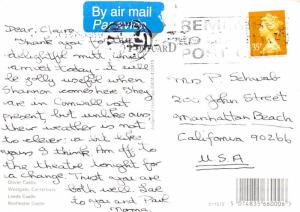 By air mail
Par avion
POSTCARD
35
Dear Claire,
Thank you for the
delightful mutt, which
arrived today it will
be jolly useful when
Shannon comes here. They
are in Cornwall at
present, but unlike ours,
their weather is not
to clever: a bit like
yours I think. Am off to
the theatre tonight for
a change. Trust you are
both well. Love
to you and Paul
Mrs P Schwab
200 John Street
Manhattan Beach
California 90266
U.S.A
Dover Castle
Westgate, Canterbury
Leeds Castle
Rochester Castle
5 014835 660006